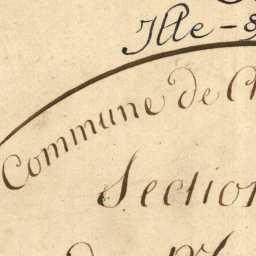 Ille-&
Commune de C
Section
de